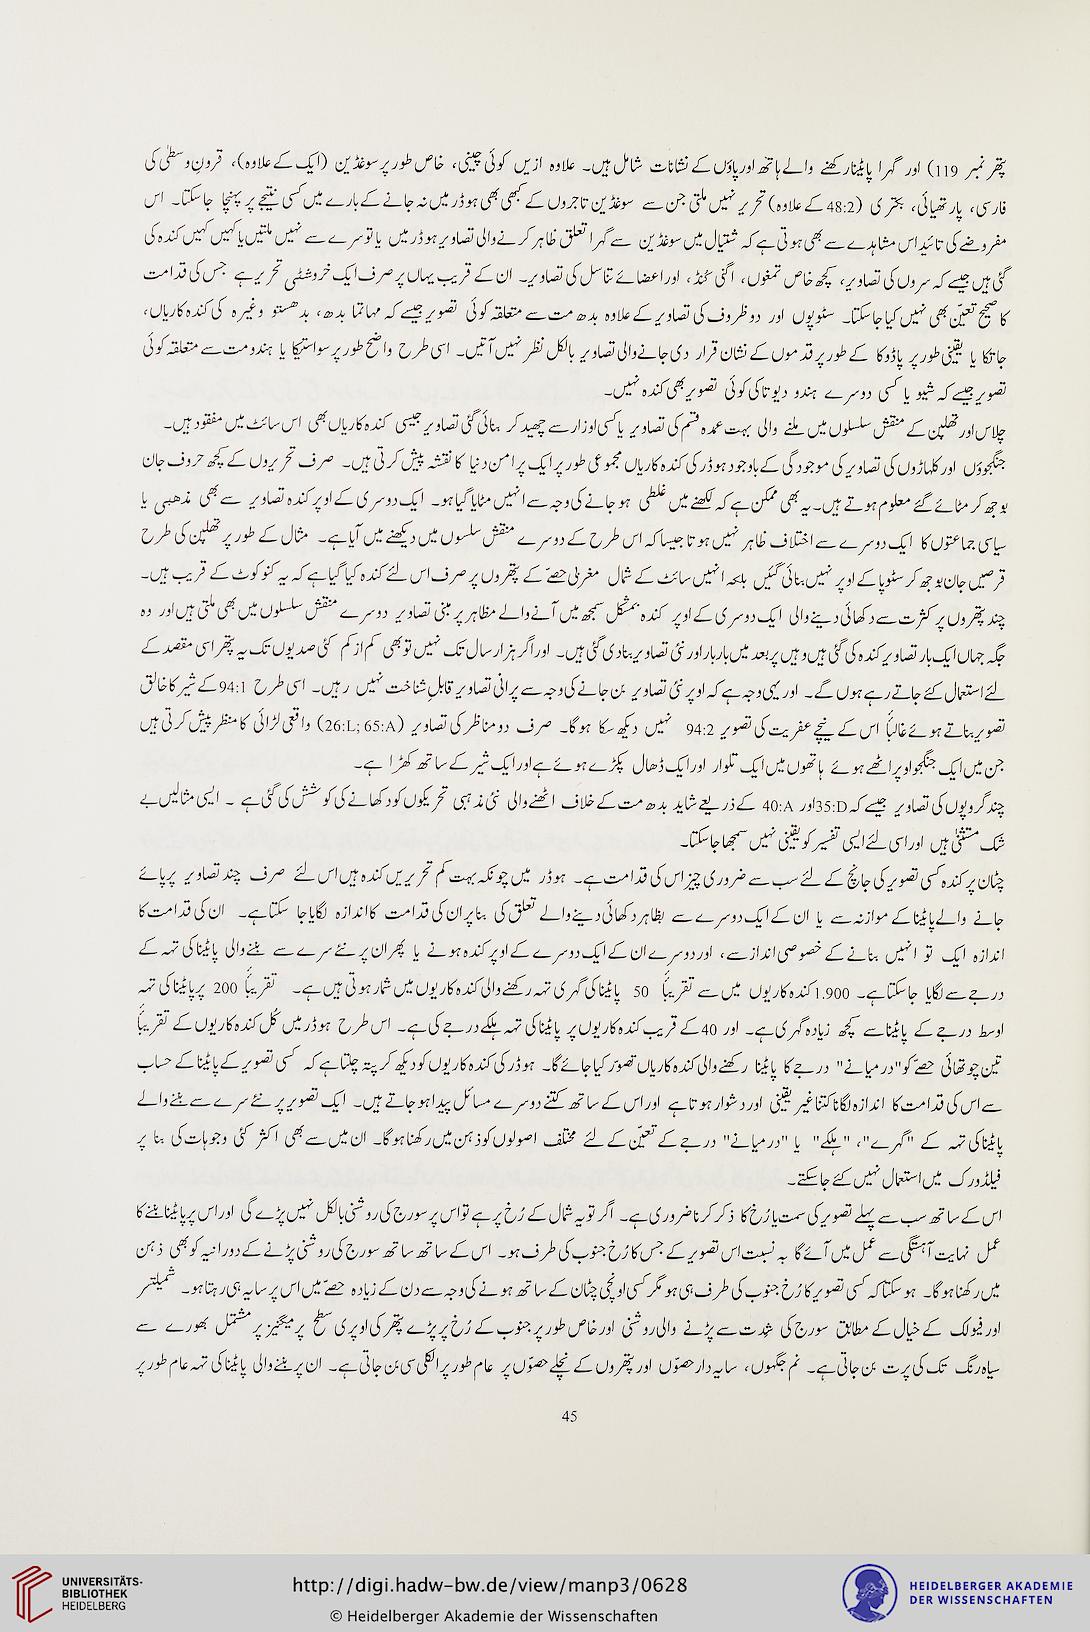 پتھر نمبر 119) اور گہرا پاٹینار کھنے والے ہاتھ اور پاؤں کے نشانات شامل ہیں۔ علاوہ ازیں کوئی چینی، خاص طور پر سوغدین (ایک کے علاوہ)، قرونِ وسطیٰ کی
فارسی، پارتھیائی، بختری (48:2 کے علاوہ) تحریر نہیں ملتی جن سے سوغدین تاجروں کے کبھی بھی ہوڈر میں نہ جانے کے بارے میں کسی نتیجے پر پہنچا جاسکتا۔ اس
مفروضے کی تائید اس مشاہدے سے بھی ہوتی ہے کہ شتیال میں سوغدین سے گہرا تعلق ظاہر کرنے والی تصاویر ہوڈر میں یا تو سرے سے نہیں ملتیں یا کہیں کہیں کندہ کی
گئی ہیں جیسے کہ سروں کی تصاویر، کچھ خاص تمغوں، اگنی کُنڈ، اور اعضائے تناسل کی تصاویر۔ ان کے قریب یہاں پر صرف ایک خروشٹی تحریر ہے جس کی قدامت
کا صحیح تعیّن بھی نہیں کیا جاسکتا۔ سٹوپوں اور دو ظروف کی تصاویر کے علاوہ بدھ مت سے متعلقہ کوئی تصویر جیسے کہ مہاتما بدھ، بدھستو وغیرہ کی کندہ کاریاں،
جاتکا یا یقینی طور پر پاڈوکا کے طور پر قدموں کے نشان قرار دی جانے والی تصاویر بالکل نظر نہیں آتیں۔ اسی طرح واضح طور پر سواستیکا یا ہندومت سے متعلقہ کوئی
تصویر جیسے کہ شیو یا کسی دوسرے ہندو دیوتا کی کوئی تصویر بھی کندہ نہیں۔
چلاس اور تھلپن کے منقش سلسلوں میں ملنے والی بہت عمدہ قسم کی تصاویر یا کسی اوزار سے چھید کر بنائی گئی تصاویر جیسی کندہ کاریاں بھی اس سائٹ میں مفقود ہیں۔
جنگجوؤں اور کلہاڑوں کی تصاویر کی موجودگی کے باوجود ہوڈر کی کندہ کاریاں مجموعی طور پر ایک پر امن دنیا کا نقشہ پیش کرتی ہیں۔ صرف تحریروں کے کچھ حروف جان
بوجھ کر مٹائے گئے معلوم ہوتے ہیں۔ یہ بھی ممکن ہے کہ لکھنے میں غلطی ہو جانے کی وجہ سے انہیں مٹایا گیا ہو۔ ایک دوسری کے اوپر کندہ تصاویر سے بھی مذھبی یا
سیاسی جماعتوں کا ایک دوسرے سے اختلاف ظاہر نہیں ہوتا جیسا کہ اس طرح کے دوسرے منقش سلسوں میں دیکھنے میں آیا ہے۔ مثال کے طور پر تھلپن کی طرح
قرصیں جان بوجھ کر سٹوپا کے اوپر نہیں بنائی گئیں بلکہ انہیں سائٹ کے شمال مغربی حصے کے پتھروں پر صرف اس لئے کندہ کیا گیا ہے کہ یہ کنو کوٹ کے قریب ہیں۔
چند پتھروں پر کثرت سے دکھائی دینے والی ایک دوسری کے اوپر کندہ بمشکل سمجھ میں آنے والے مظاہر پر مبنی تصاویر دوسرے منقش سلسلوں میں بھی ملتی ہیں اور وہ
جگہ جہاں ایک بار تصاویر کندہ کی گئی ہیں وہیں پر بعد میں بار بار اور نئی تصاویر بنادی گئی ہیں۔ اور اگر ہزار سال تک نہیں تو بھی کم از کم کئی صدیوں تک یہ پتھر اسی مقصد کے
لئے استعمال کئے جاتے رہے ہوں گے۔ اور یہی وجہ ہے کہ اوپر نئی تصاویر بن جانے کی وجہ سے پرانی تصاویر قابلِ شناخت نہیں رہیں۔ اسی طرح 94:1 کے شیر کا خالق
تصویر بناتے ہوئے غالباً اس کے نیچے عفریت کی تصویر 94:2 نہیں دیکھ سکا ہوگا۔ صرف دو مناظر کی تصاویر (26:L; 65:A) واقعی لڑائی کا منظر پیش کرتی ہیں
جن میں ایک جنگجو اوپر اٹھے ہوئے ہاتھوں میں ایک تلوار اور ایک ڈھال پکڑے ہوئے ہے اور ایک شیر کے ساتھ کھڑا ہے۔
چند گروپوں کی تصاویر جیسے کہ 35:D اور 40:A کے ذریعے شاید بدھ مت کے خلاف اٹھنے والی نئی مذہبی تحریکوں کو دکھانے کی کوشش کی گئی ہے ۔ ایسی مثالیں بے
شک مستثنیٰ ہیں اور اسی لئے ایسی تفسیر کو یقینی نہیں سمجھا جاسکتا۔
چٹان پر کندہ کسی تصویر کی جانچ کے لئے سب سے ضروری چیز اس کی قدامت ہے۔ ہوڈر میں چونکہ بہت کم تحریریں کندہ ہیں اس لئے صرف چند تصاویر پر پائے
جانے والے پاٹینا کے موازنہ سے یا ان کے ایک دوسرے سے بظاہر دکھائی دینے والے تعلق کی بنا پر ان کی قدامت کا اندازہ لگایا جا سکتا ہے۔ ان کی قدامت کا
اندازہ ایک تو انہیں بنانے کے خصوصی انداز سے، اور دوسرے ان کے ایک دوسرے کے اوپر کندہ ہونے یا پھر ان پر نئے سرے سے بننے والی پاٹینا کی تہہ کے
درجے سے لگایا جاسکتا ہے۔ 1.900 کندہ کاریوں میں سے تقریباً 50 پاٹینا کی گہری تہہ رکھنے والی کندہ کاریوں میں شمار ہوتی ہیں ہے۔ تقریباً 200 پر پاٹینا کی تہہ
اوسط درجے کے پاٹینا سے کچھ زیادہ گہری ہے۔ اور 40 کے قریب کندہ کاریوں پر پاٹینا کی تہہ ہلکے درجے کی ہے۔ اس طرح ہوڈر میں کُل کندہ کاریوں کے تقریباً
تین چوتھائی حصے کو "درمیانے" درجے کا پاٹینا رکھنے والی کندہ کاریاں تصوّر کیا جائے گا۔ ہوڈر کی کندہ کاریوں کو دیکھ کر پتہ چلتا ہے کہ کسی تصویر کے پاٹینا کے حساب
سے اس کی قدامت کا اندازہ لگانا کتنا غیر یقینی اور دشوار ہوتا ہے اور اس کے ساتھ کتنے دوسرے مسائل پیدا ہو جاتے ہیں۔ ایک تصویر پر نئے سرے سے بننے والے
پاٹینا کی تہہ کے "گہرے"، "ہلکے" یا "درمیانے" درجے کے تعیّن کے لئے مختلف اصولوں کو ذہن میں رکھنا ہوگا۔ ان میں سے بھی اکثر کئی وجوہات کی بنا پر
فیلڈورک میں استعمال نہیں کئے جاسکتے۔
اس کے ساتھ سب سے پہلے تصویر کی سمت یا رُخ کا ذکر کرنا ضروری ہے۔ اگر تو یہ شمال کے رُخ پر ہے تو اس پر سورج کی روشنی بالکل نہیں پڑے گی اور اس پر پاٹینا بننے کا
عمل نہایت آہستگی سے عمل میں آئے گا بہ نسبت اس تصویر کے جس کا رُخ جنوب کی طرف ہو۔ اس کے ساتھ ساتھ سورج کی روشنی پڑنے کے دورانیہ کو بھی ذہن
میں رکھنا ہوگا۔ ہو سکتا کہ کسی تصویر کا رُخ جنوب کی طرف ہی ہو مگر کسی اونچی چٹان کے ساتھ ہونے کی وجہ سے دن کے زیادہ حصے میں اس پر سایہ ہی رہتا ہو۔ شمیلتسر
اور فیولک کے خیال کے مطابق سورج کی شدت سے پڑنے والی روشنی اور خاص طور پر جنوب کے رُخ پر پڑے پتھر کی اوپری سطح پر میگنیز پر مشتمل بھورے سے
سیاہ رنگ تک کی پرت بن جاتی ہے۔ نم جگہوں، سایہ دار حصوّں اور پتھروں کے نچلے حصوّں پر عام طور پر الگی سی بن جاتی ہے۔ ان پر بننے والی پاٹینا کی تہہ عام طور پر
45
UNIVERSITÄTS-
BIBLIOTHEK
HEIDELBERG
http://digi.hadw-bw.de/view/manp3/0628
© Heidelberger Akademie der Wissenschaften
HEIDELBERGER AKADEMIE
DER WISSENSCHAFTEN